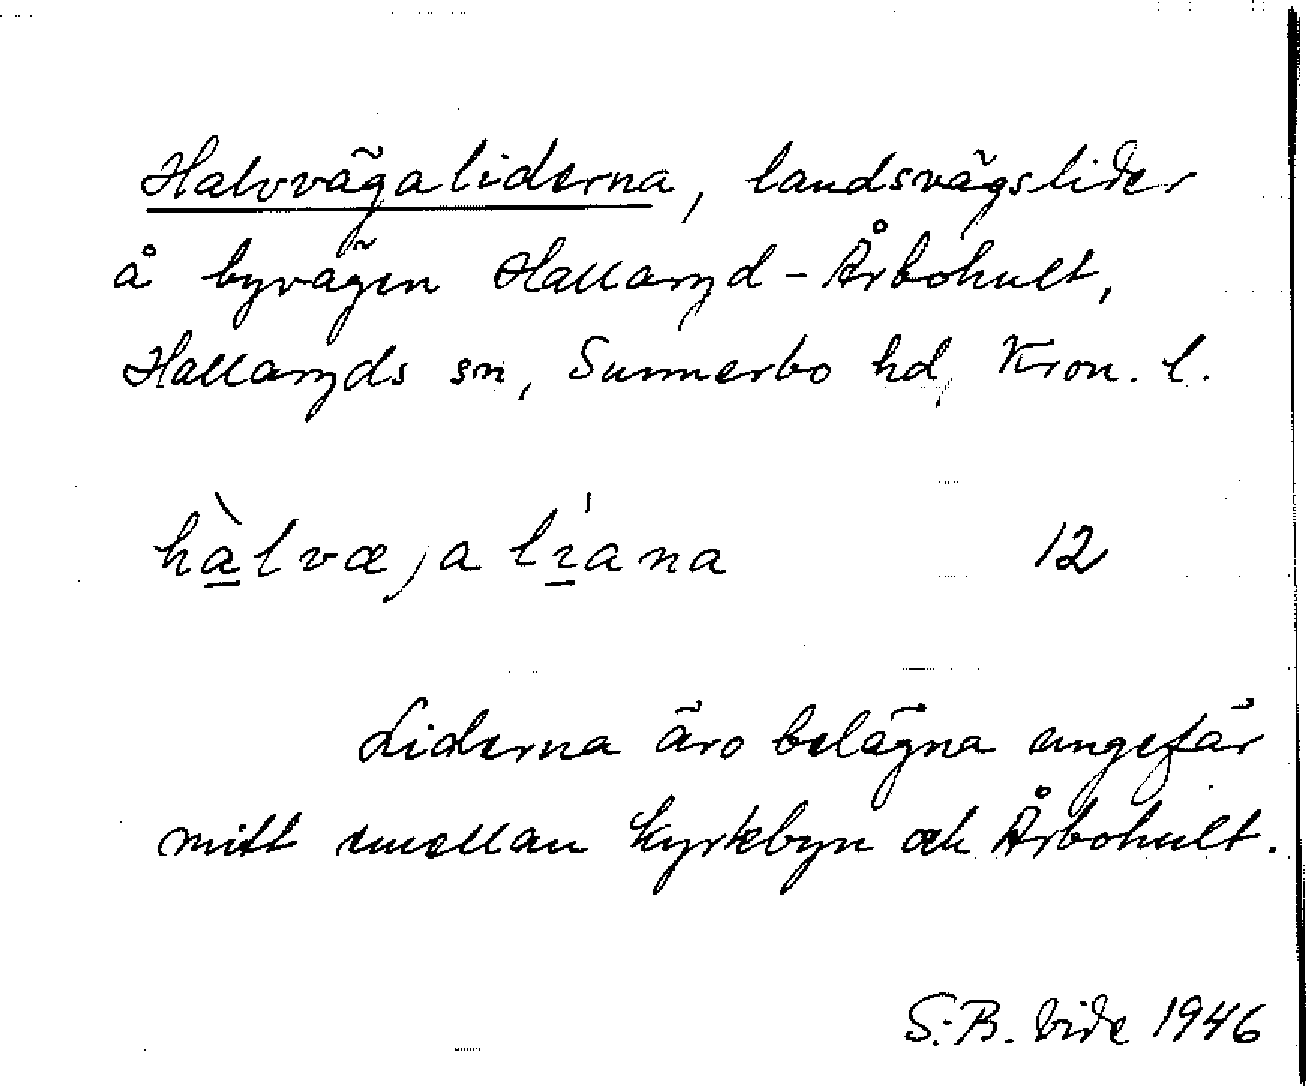 Halvvägaliderna, landsvägslider
å byvägen Hallaryd - Årbohult,
Hallaryds sn, Sunnerbo hd, Kron. l.
hàlvæjaliana 12
Liderna äro belägna ungefär
mitt emellan kyrkbyn och Årbohult.
S.-B. Vide 1946